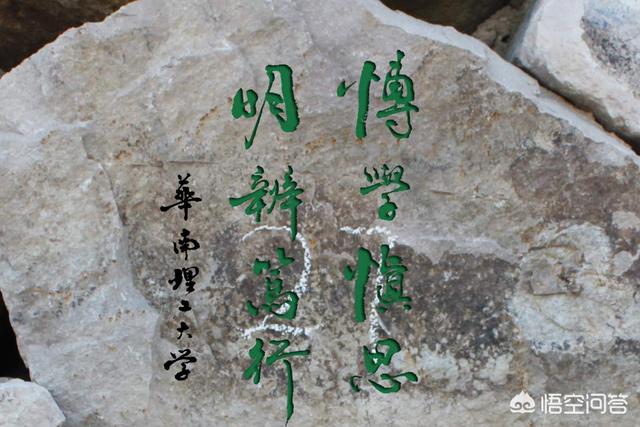 博學慎思
明辨篤行
華南理工大学
悟空问答